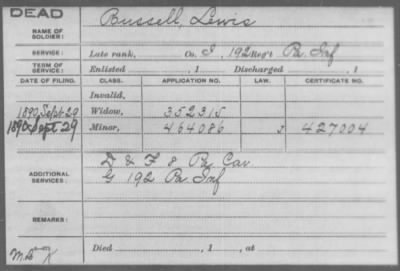 DEAD
NAME OF SOLDIER: Bussell, Lewis
SERVICE: Late rank, Co. I, 192 Reg't Pa. Inf
TERM OF SERVICE: Enlisted , 1 Discharged , 1
DATE OF FILING. CLASS. APPLICATION NO. LAW. CERTIFICATE NO.
Invalid,
1890, Sept. 29 Widow, 352315
1890, Sept. 29 Minor, 464086 427004
ADDITIONAL SERVICES: D & F 8 Pa Cav.
G 192 Pa Inf
REMARKS:
Died , 1 , at